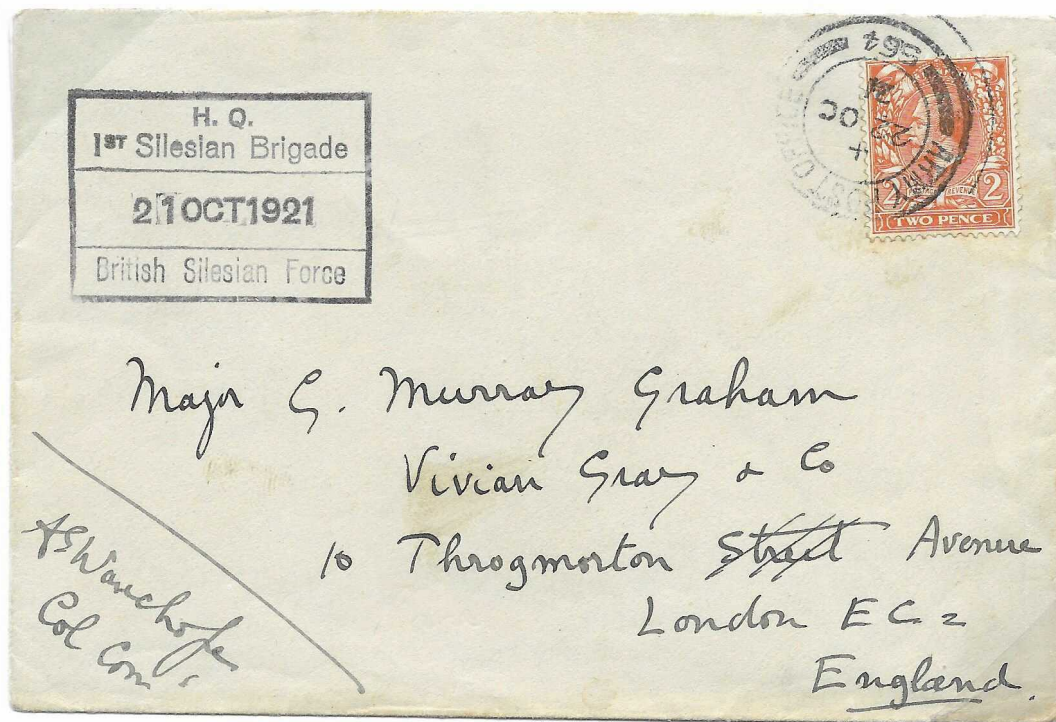 H. Q.
1ST Silesian Brigade
21 OCT 1921
British Silesian Force
ARMY POST OFFICE
S64
OC
21
POSTAGE REVENUE
2 2
TWO PENCE
Major G. Murray Graham
Vivian Gray & Co
10 Throgmorton Street Avenue
London E C 2
England.
A G Wauchope
Col Com